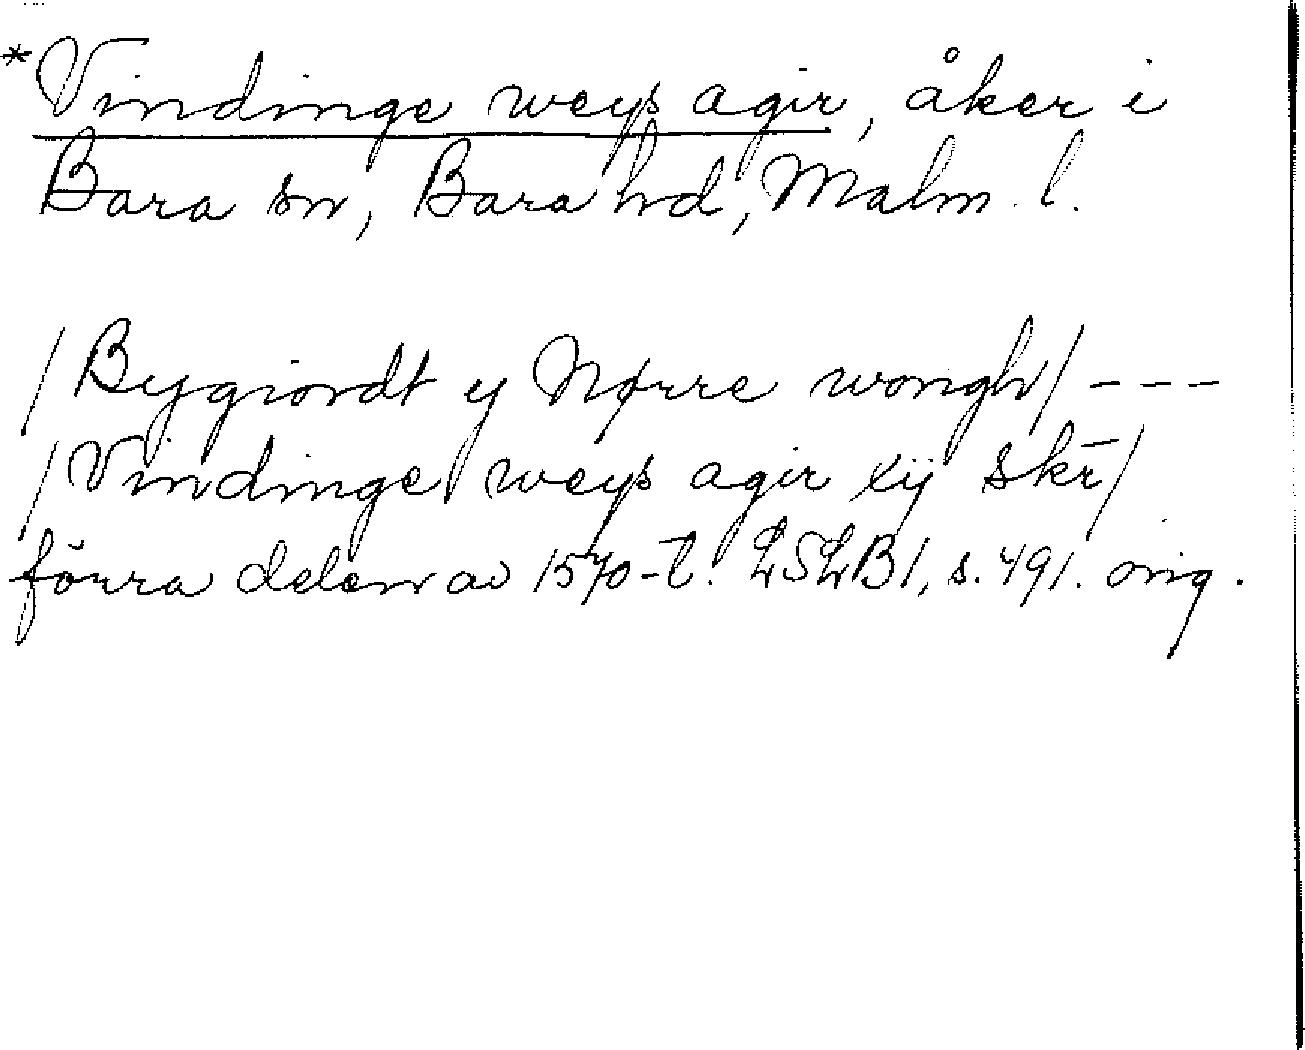 *Vindinge weys agir, åker i
Bara sn, Bara hd, Malm. l.
/Bygiordt y Nørre wongh/ ---
/Vindinge weys agir xij skr̄/
förra delen av 1570-t. LSLB1, s. 491. orig.